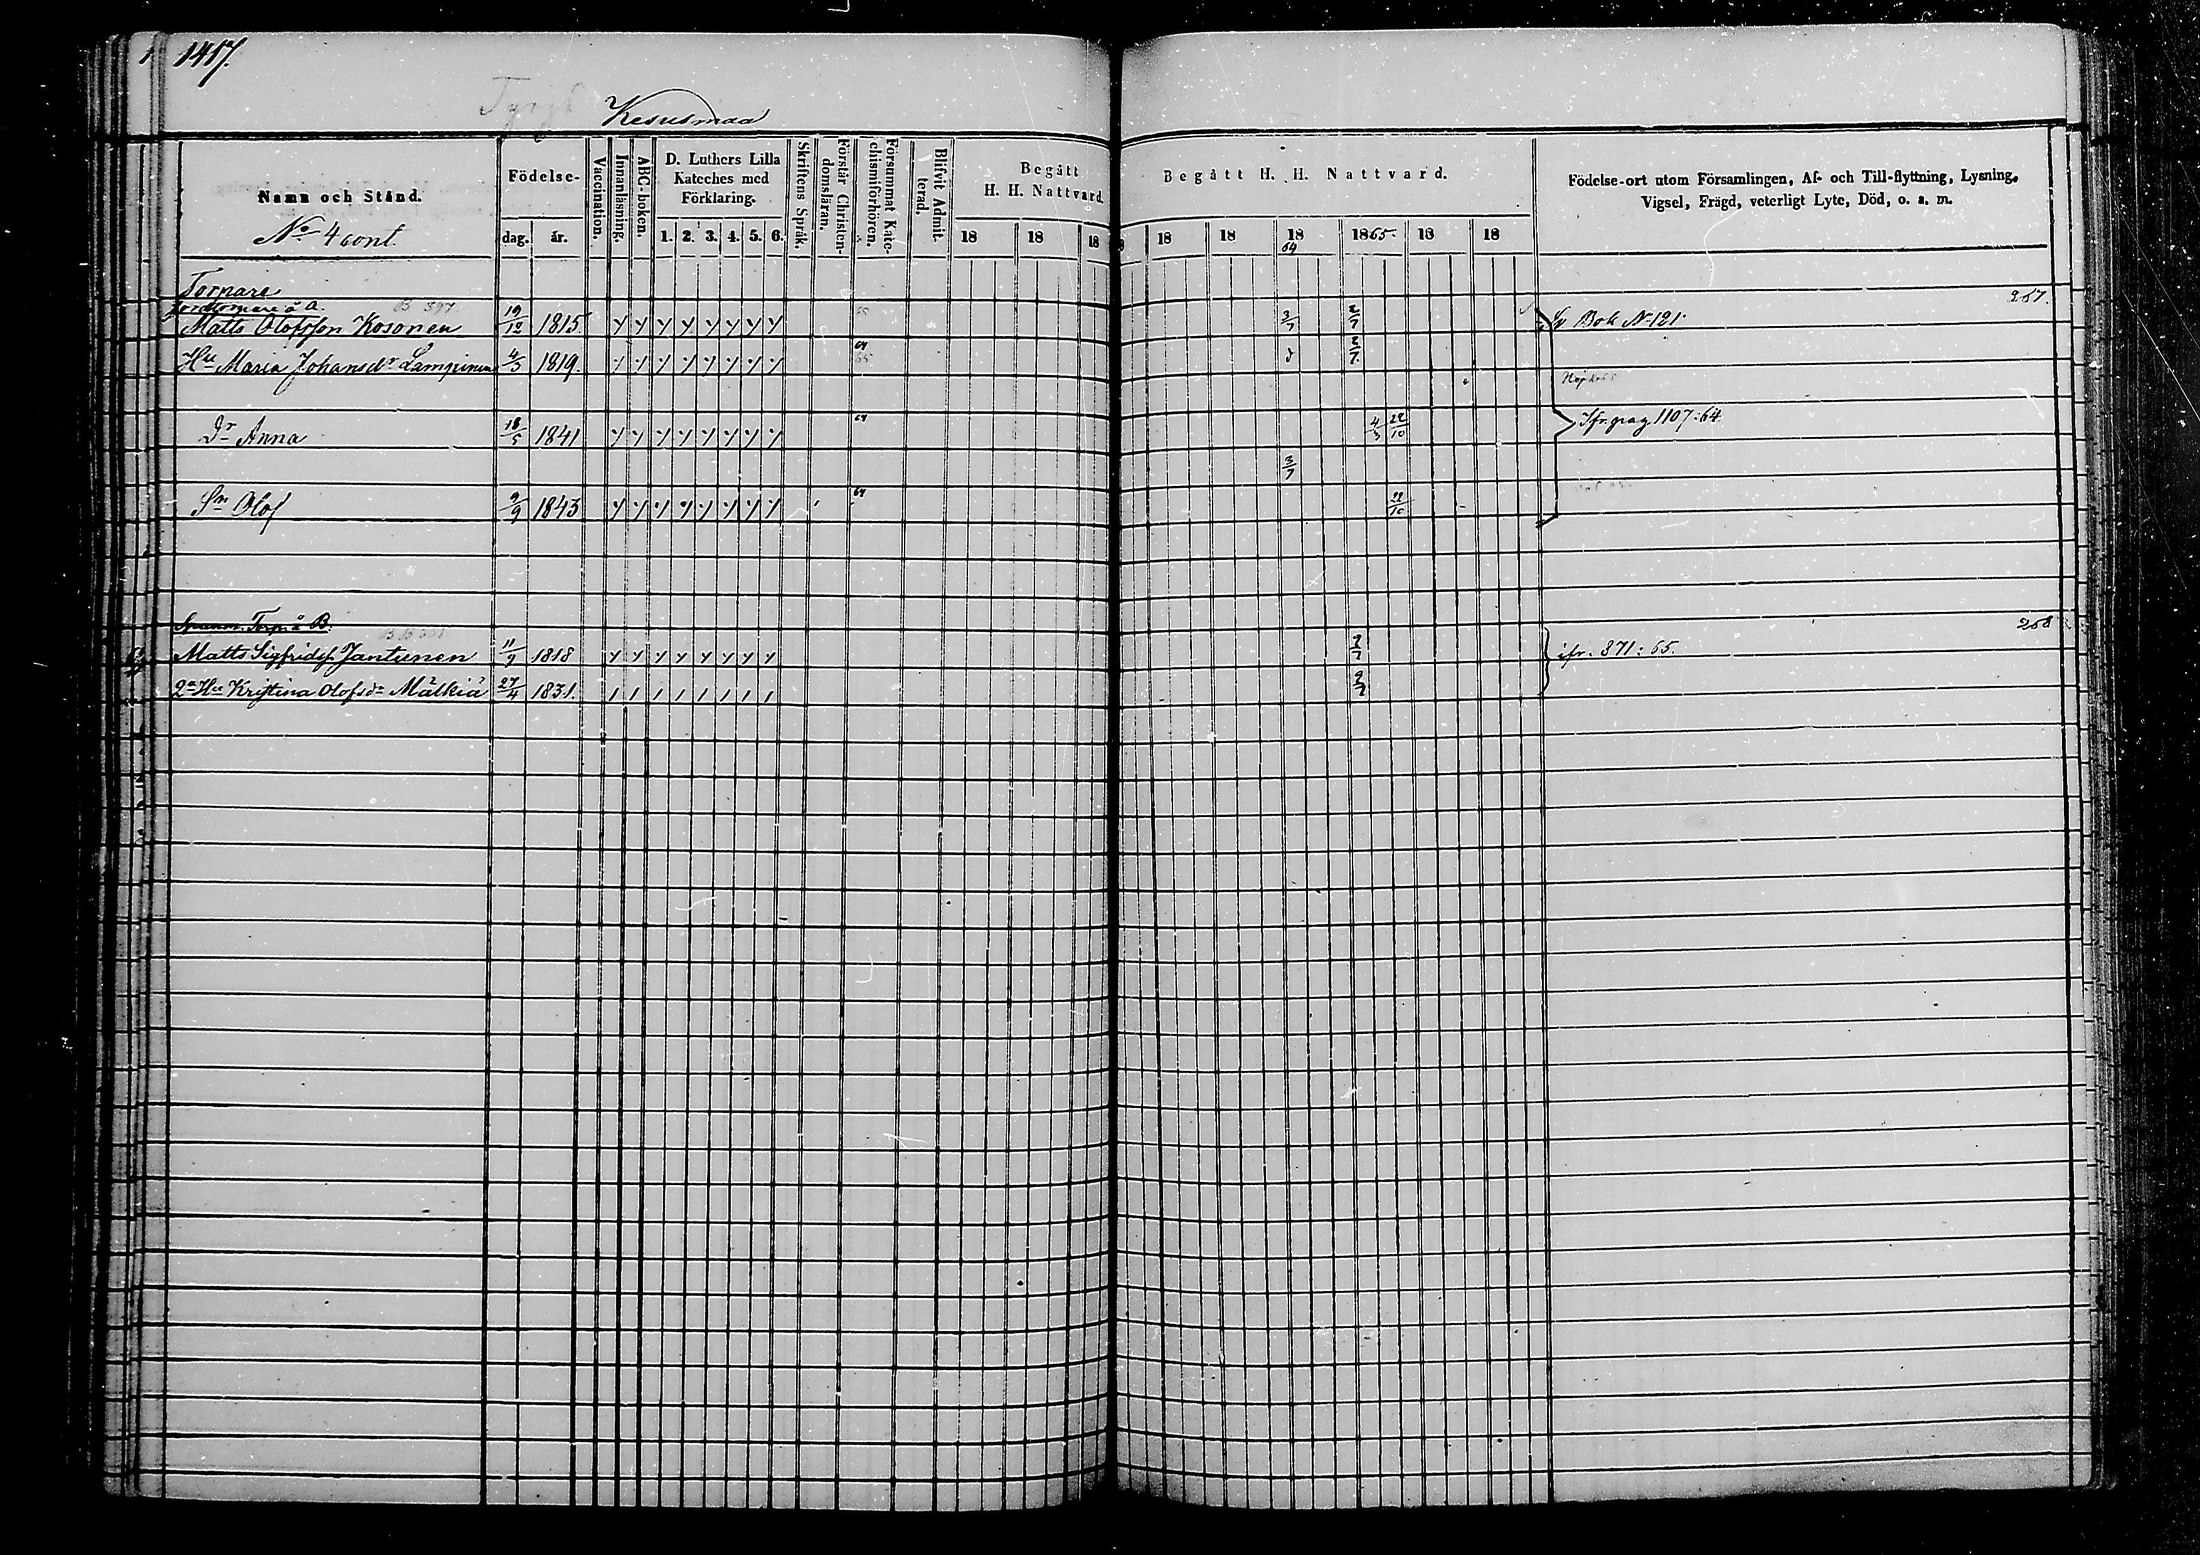 1417.
Kesusmaa
Namn och Stånd.
No 4 cont.
Födelse-
dag. år.
Vaccination.
Innanläsning.
ABC-boken.
D. Luthers Lilla
Kateches med
Förklaring.
1. 2. 3. 4. 5. 6.
Skriftens Språk.
Förstår Christen-
domsläran.
Försummat Kate-
chismiförhören.
Blifvit Admit-
terad.
Begått
H. H. Nattvard.
18 18 18
Begått H. H. Nattvard.
18 18 1864 1865. 18 18
Födelse-ort utom Församlingen, Af- och Till-flyttning, Lysning,
Vigsel, Frägd, veterligt Lyte, Död, o. s. m.
Torpare
267.
å A. B 397
Matts Olofsson Kosonen 19/12 1815 65 3/7 2/7 Bok No 121
Hu Maria Johansdr Lampinen 4/3 1819. 64 65 2/7
Dr Anna 18/5 1841 64 4/3 22/10 Jfr pag 1107:64
3/7
Sn Olof 9/9 1843 64 22/10
Torp. å B. 268
Matts Sigfridsf. Jantunen 11/9 1818 2/7 jfr. 371:65.
2a Hu Kristina Olofsdr Mälkiä 27/4 1831. 2/7